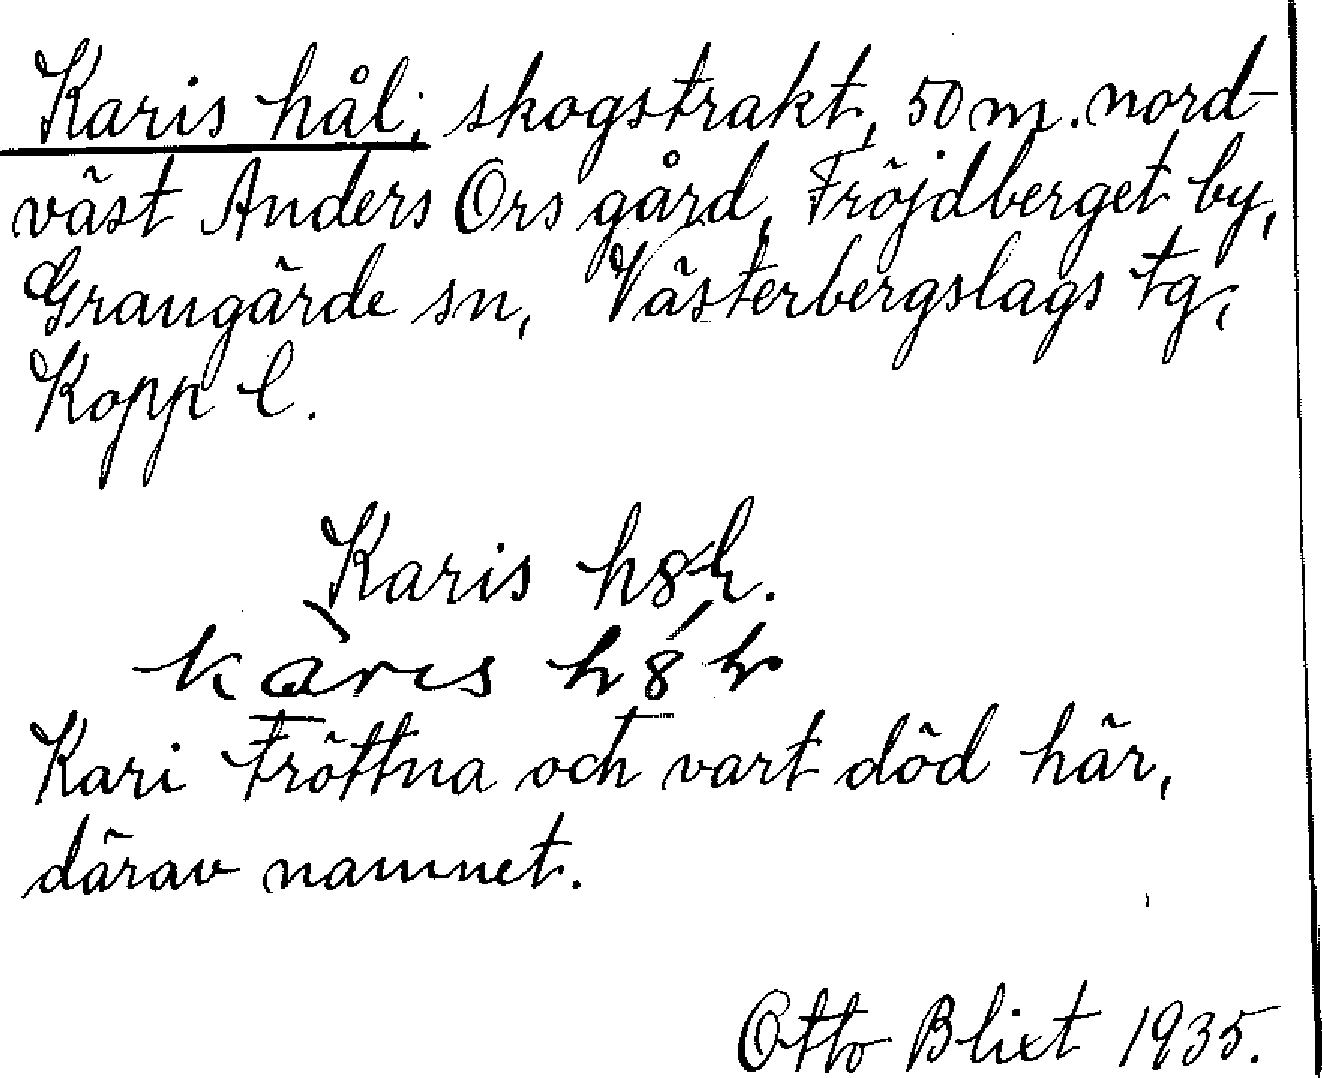 Karis hål, skogstrakt, 50 m. nord-
väst Anders Ors gård, Fröjdberget by,
Grangärde sn, Västerbergslags tg,
Kopp l.
Karis
Kari tröttna och vart död här,
därav namnet.
Otto Blixt 1935.